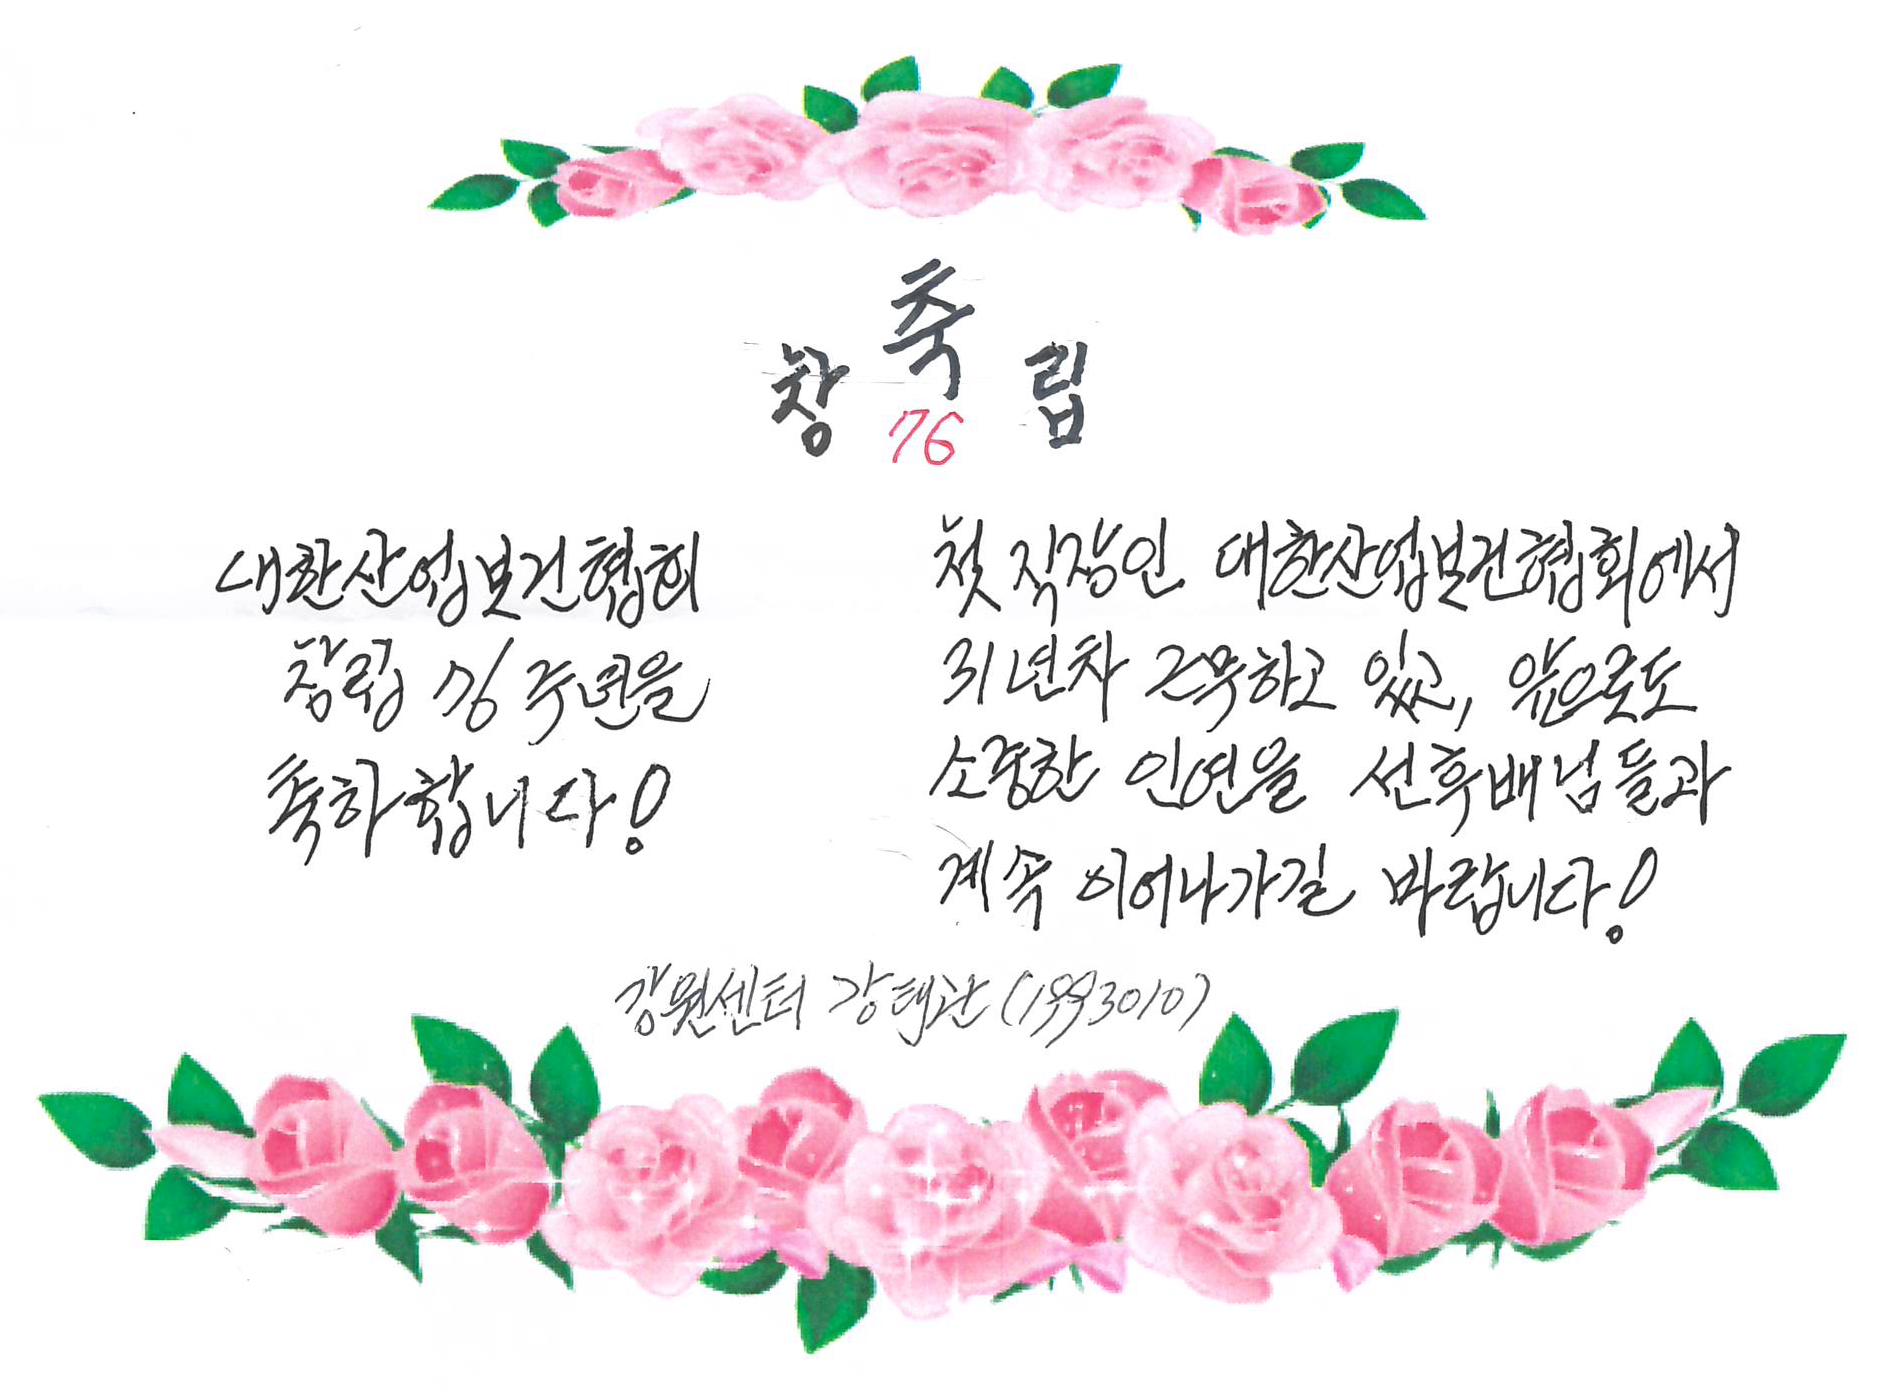 축
창 76 립
대한산업보건협회
창립 76주년을
축하합니다!
첫 직장인 대한산업보건협회에서
31년차 근무하고 있고, 앞으로도
소중한 인연을 선후배님들과
계속 이어나가길 바랍니다!
강원센터 강태관(1993010)